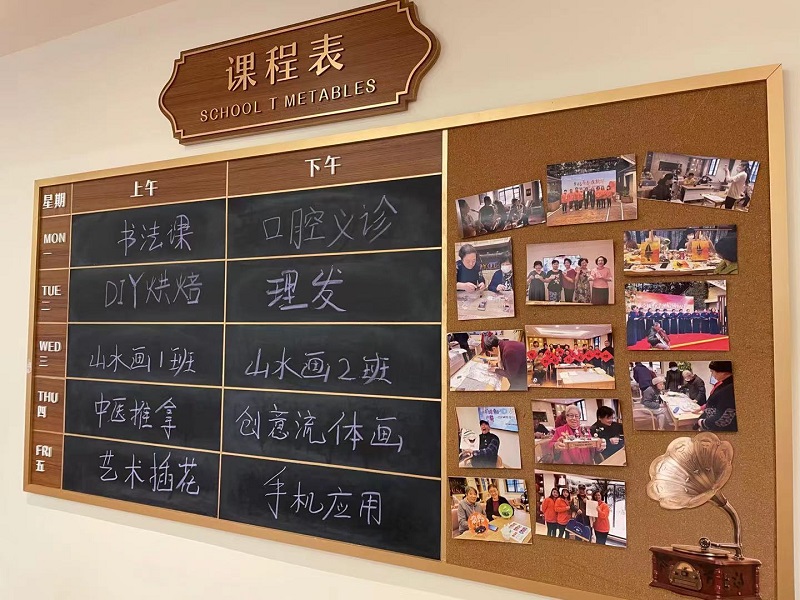 课程表
SCHOOL T METABLES
星期 上午 下午
MON 一 书法课 口腔义诊
TUE 二 DIY烘焙 理发
WED 三 山水画1班 山水画2班
THU 四 中医推拿 创意流体画
FRI 五 艺术插花 手机应用